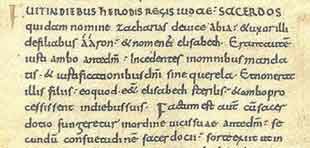 FUIT IN DIEBUS HERODIS REGIS IUDAE· SACERDOS
quidam nomine zacharias de uice abia· & uxor illi
de filiabus aaron· & nomen ei elisabeth· Erant autem
iusti ambo ante dm· Incedentes in omnibus manda
tis· & iustificationibus dni sine querela· Et non erat
illis filius· eo quod eet elisabeth sterilis· & ambo pro
cessissent in diebus suis· Factum est aute cu sacer
dotio fungeretur in ordine uicis suae ante dm· se
cundu consuetudine sacerdotii· sorte exiit ut in